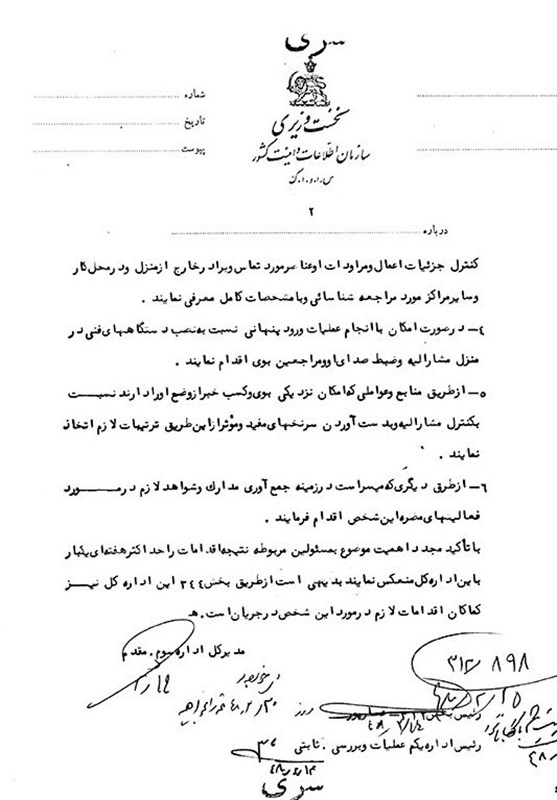 سری
نخست وزیری
سازمان اطلاعات و امنیت کشور
س.ا.و.ا.ک
شماره
تاریخ
پیوست
۲
درباره
کنترل جزئیات اعمال ومراودات اوعناصرمورد تماس ویراد رخارج ازمنزل ودرمحل کار
وسایرمراکز مورد مراجعه شناسائی وبامشخصات کامل معرفی نمایند .
٤- د رصورت امکان باانجام عملیات ورود پنهانی نسبت به نصب د ستگاههای فنی در
منزل مشارالیه وضبط صدای اوومراجعین بوی اقدام نمایند .
٥- ازطریق منابع وعواملی که امکان نزد یکی بوی وکسب خبرازوضع اورا دارند نسبت
بکنترل مشارالیه وبدست آوردن سرنخهای مفید ومؤثرازاین طریق ترتیبات لازم اتخاذ
نمایند .
٦- ازطرق دیگری که میسراست درزمینه جمع آوری مدارك وشواهد لازم درمورد
فعالیتهای مضره این شخص اقدام فرمایند .
باتأکید مجدد اهمیت موضوع بمسئولین مربوطه نتیجه اقدامات راحداکثرهفته ای یکبار
باین اداره کل منعکس نمایند بدیهی است ازطریق بخش ٣٤٤ این اداره کل نیز
کماکان اقدامات لازم درمورد این شخص درجریان است. ه
مدیرکل اداره سوم . مقدم
۳۱۲/ ۸۹۸
رئیس بخش
رئیس اداره یکم عملیات وبررسی . ثابتی
سری